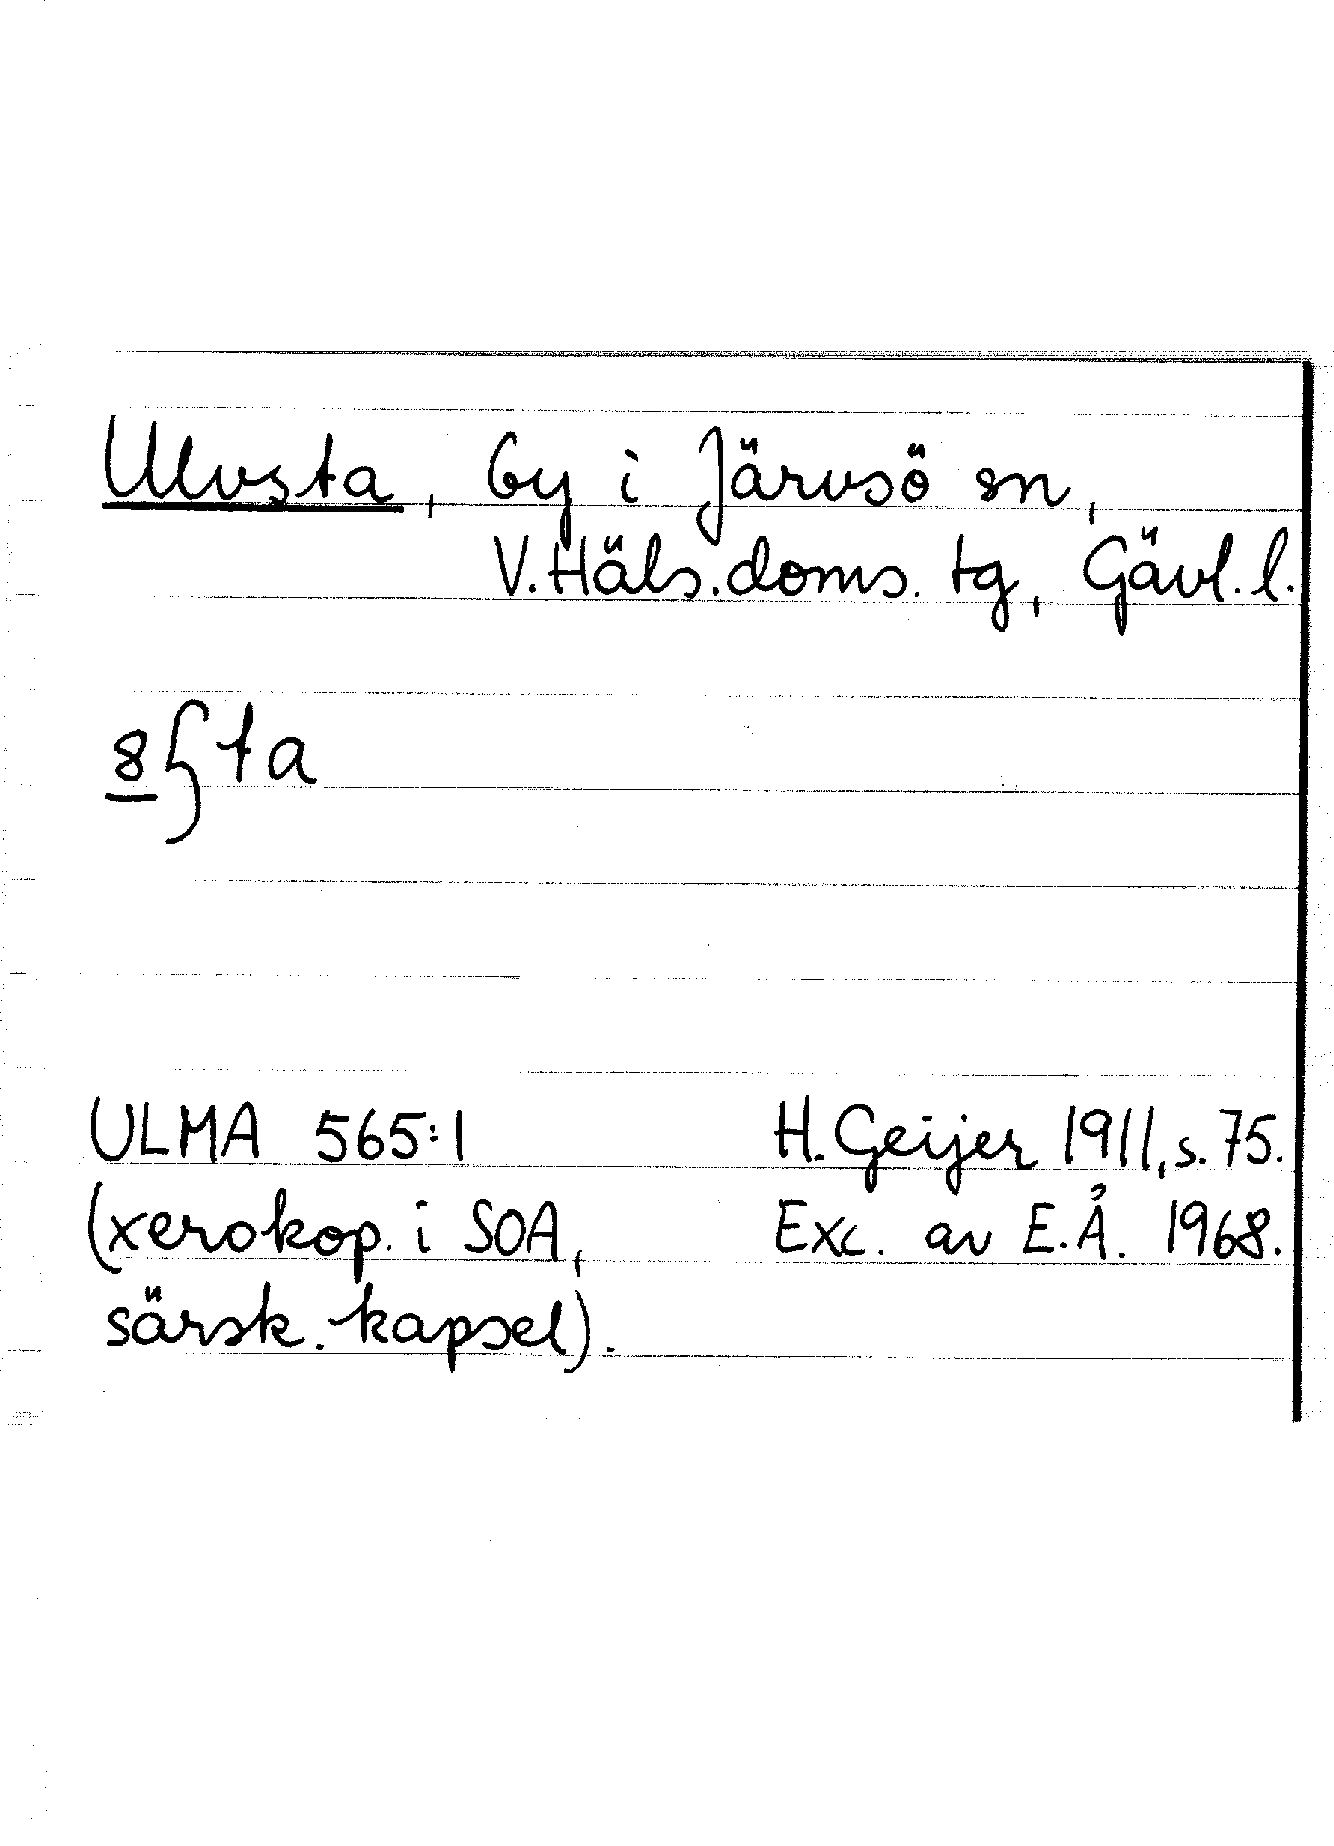 Ulvsta, by i Järvsö sn,
V. Häls. doms. tg, Gävl. l.
ta
ULMA 565:1
(xerokop. i SOA,
särsk. kapsel).
H. Geijer 1911, s. 75.
Exc. av E.Å. 1968.